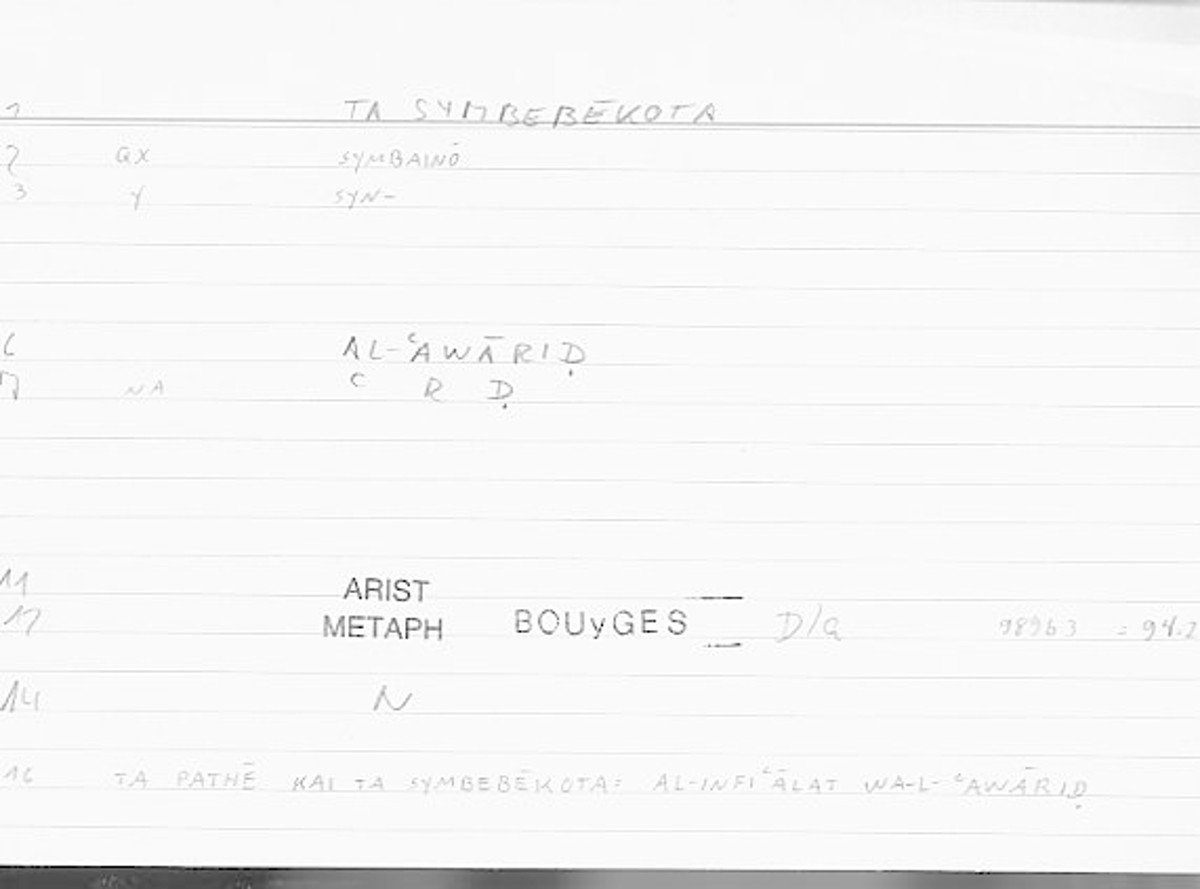 1 TA SYMBEBĒKOTA
2 QX SYMBAINŌ
3 Y SYN-
6 AL-ʿAWĀRIḌ
7 NA ʿ R Ḍ
11 ARIST
12 METAPH BOUyGES D/G 989b3 = 94.2
14 N
16 TA PATHĒ KAI TA SYMBEBĒKOTA: AL-INFIʿĀLAT WA-L-ʿAWĀRIḌ